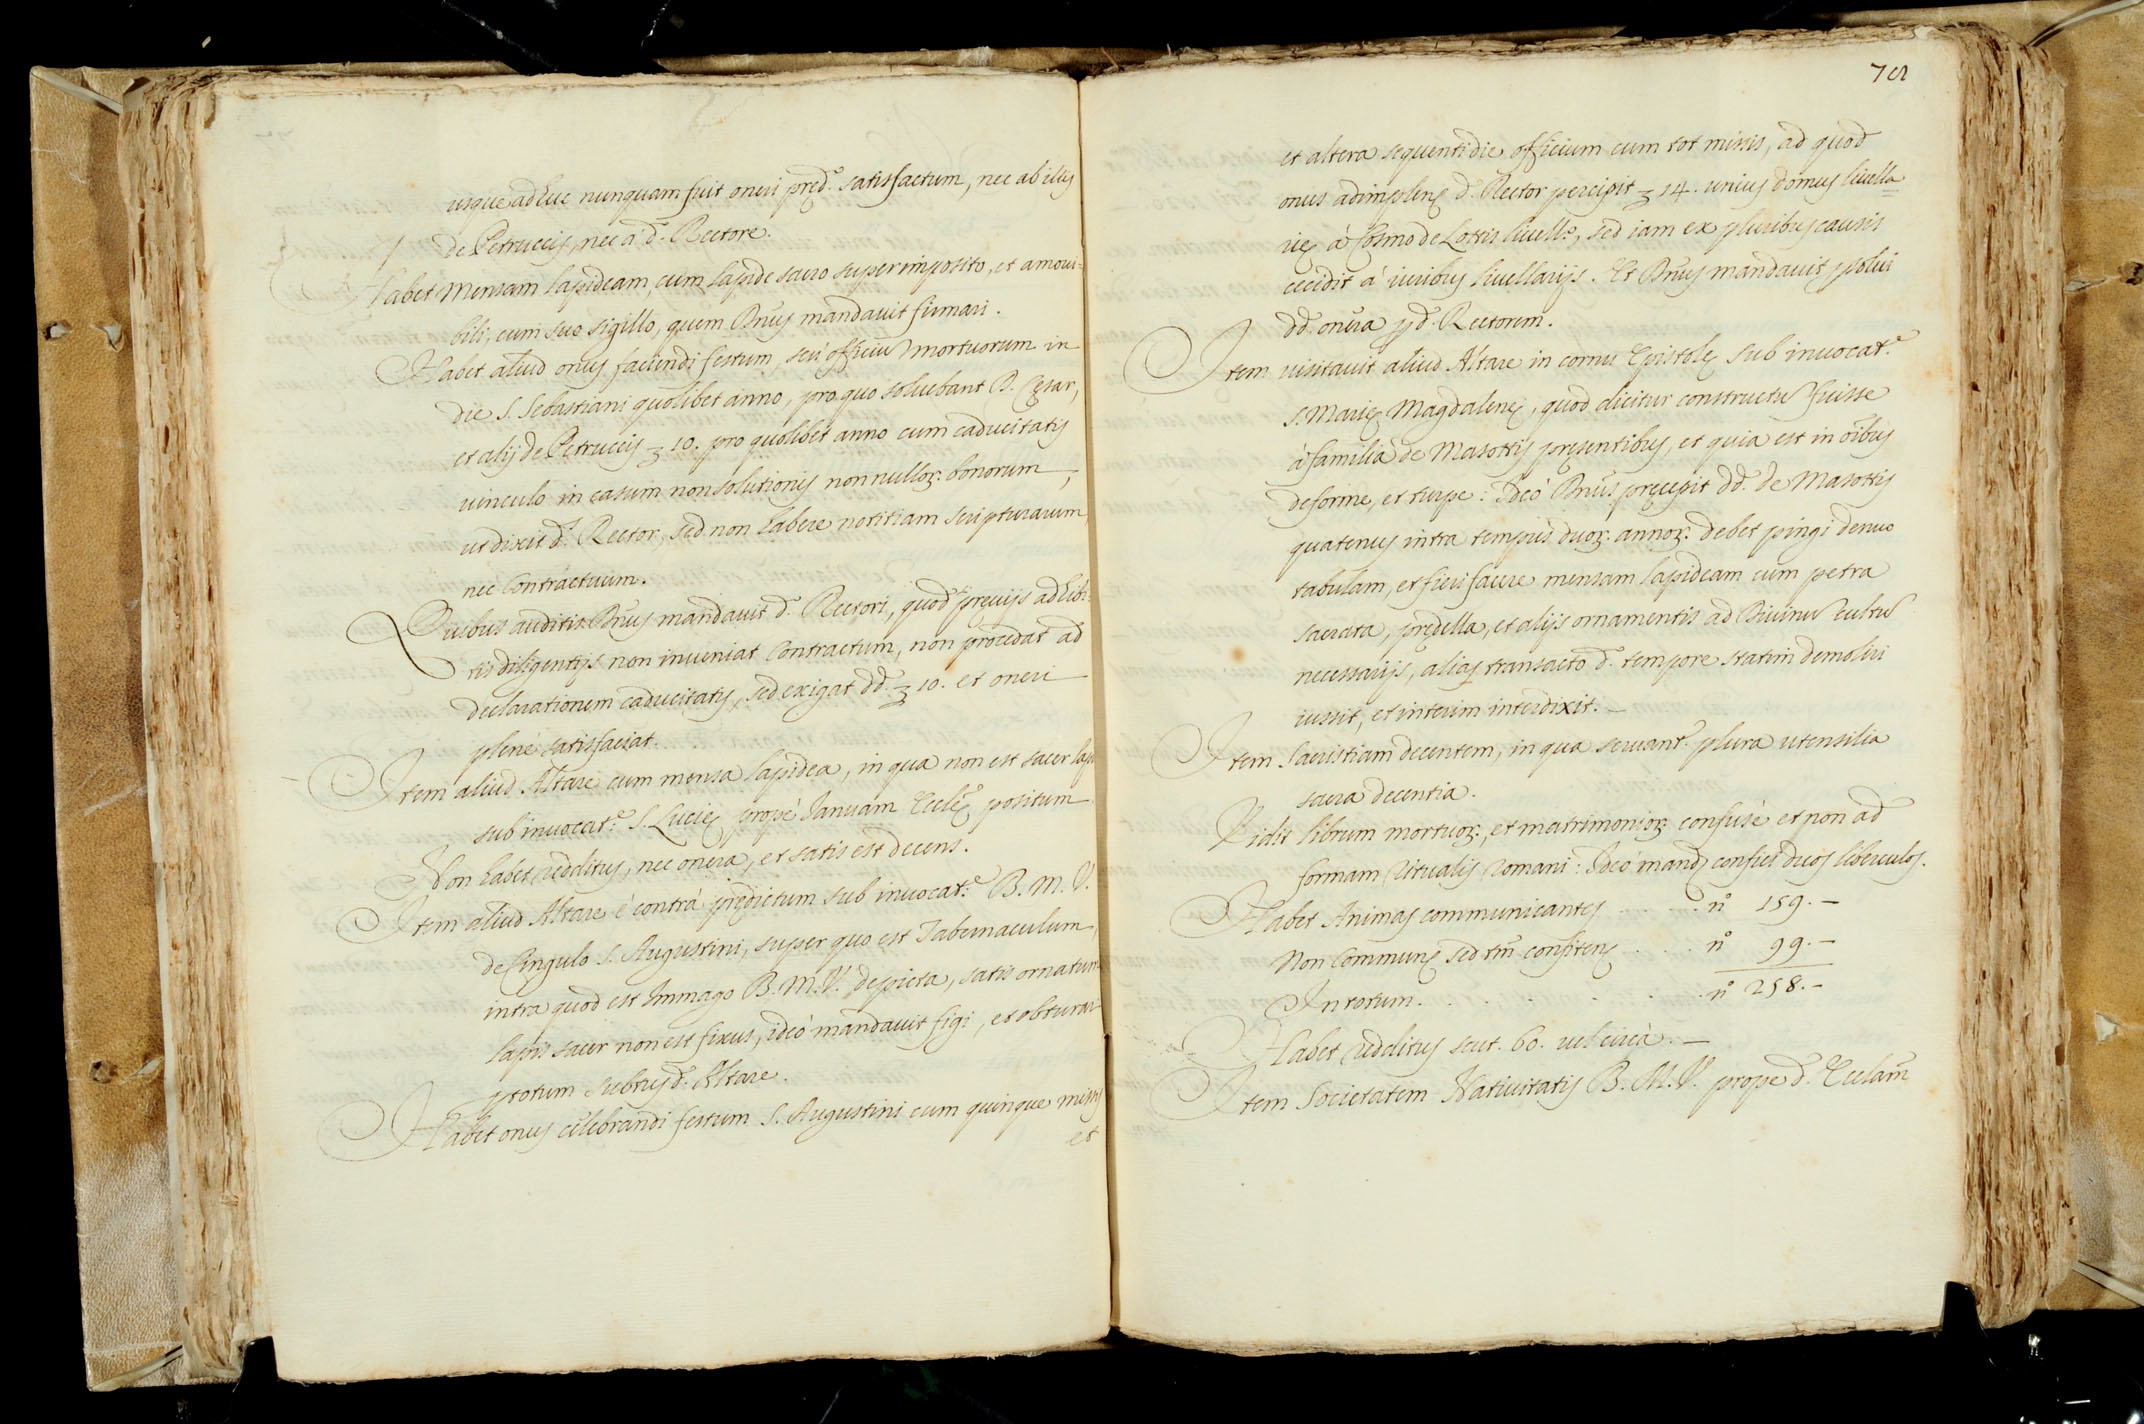 usque adhuc nunquam fuit oneri pręd.º satisfactum, nec ab illis
de Petruccijs, nec à d.º Rectore.
Habet Mensam lapideam, cum lapide sacro superimposito, et amoui-
bili, cum suo sigillo, quem Dnus mandauit firmari.
Habet aliud onus faciendi festum, seù officiũ mortuorum in
die S. Sebastiani quolibet anno, pro quo soluebant D. Cęsar,
et alij de Petruccijs 10. pro quolibet anno cum caducitatis
uinculo in casum non solutionis non nulloꝝ bonorum,
ut dixit d.º Rector, sed non habere notitiam scripturarum,
nec Contractuum.
Quibus auditis Dnus mandauit d.º Rectori, quod pręuijs adhibi-
tis diligentijs non inueniat Contractum, non procedat ad
declarationem caducitatis, sed exigat dd.º 10. et oneri
plenè satisfaciat.
Item aliud Altare cum mensa lapidea, in qua non est sacer lapi
sub inuocat.e S. Lucię propè Ianuam Ecclę positum
Non habet redditus, nec onera, et satis est decens.
Item aliud Altare è contrà prędictum sub inuocat.e B. M. V.
de Cingulo S. Augustini, super quo est Tabernaculum,
intra quod est Immago B. M. V. depicta, satis ornatum
lapis sacer non est fixus, ideò mandauit figi, et obturari
totum subtus d.º Altare.
Habet onus celebrandi festum S. Augustini cum quinque missis
et
et altera sequenti die officium cum tot missis, ad quod
onus adimplenę d.º Rector percipit 14. unius domus liuella
rię à Cosmo de Lottis liuellº, sed iam ex pluribus causis
cecidit à iuribus liuellarijs. Et Dnus mandauit ꝑsolui
dd.º onera ꝑ d.º Rectorem.
Item uisitauit aliud Altare in cornu Epistolę sub inuocat.e
S. Marię Magdalenę, quod dicitur constructũ fuisse
à familia de Masottis pręsentibus, et quia est in oibus
deforme, et turpe: Ideò Dnus pręcepit dd. de Masottis
quatenus intra tempus duoꝝ annoꝝ debet pingi denuo
tabulam, et fieri facere mensam lapideam cum petra
sacrata, prędella, et alijs ornamentis ad Diuinũ cultũ
necessarijs, alias transacto d.º tempore statim demoliri
iussit, et interim interdixit.—
Item Sacristiam decentem, in qua seruant.r plura utensilia
sacra decentia.
Vidit librum mortuoꝝ, et matrimonioꝝ confusè et non ad
formam Ritualis Romani: Ideò mand. confici duos liberculos.
Habet Animas communicantes . . . . nº 159.—
Non Commune sed tm̃ confitenę . . . . nº 99.—
In totum. . . . . . . nº 258.—
Habet redditus scut. 60. uel circà.—
Item Societatem Natiuitatis B. M. V. prope d.º Ecclam